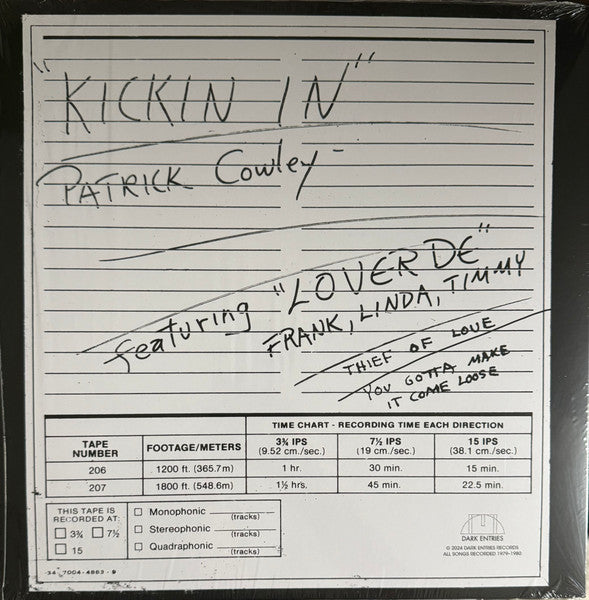 "KICKIN IN"
PATRICK Cowley -
featuring "LOVERDE"
FRANK, LINDA, TIMMY
THIEF OF LOVE
YOU GOTTA MAKE
IT COME LOOSE
TIME CHART - RECORDING TIME EACH DIRECTION
TAPE NUMBER FOOTAGE/METERS 3¾ IPS (9.52 cm./sec.) 7½ IPS (19 cm./sec.) 15 IPS (38.1 cm./sec.)
206 1200 ft. (365.7m) 1 hr. 30 min. 15 min.
207 1800 ft. (548.6m) 1½ hrs. 45 min. 22.5 min.
THIS TAPE IS
RECORDED AT:
3¾ 7½
15
Monophonic (tracks)
Stereophonic (tracks)
Quadraphonic (tracks)
DARK ENTRIES
© 2024 DARK ENTRIES RECORDS
ALL SONGS RECORDED 1979-1980
34-7004-4863-9